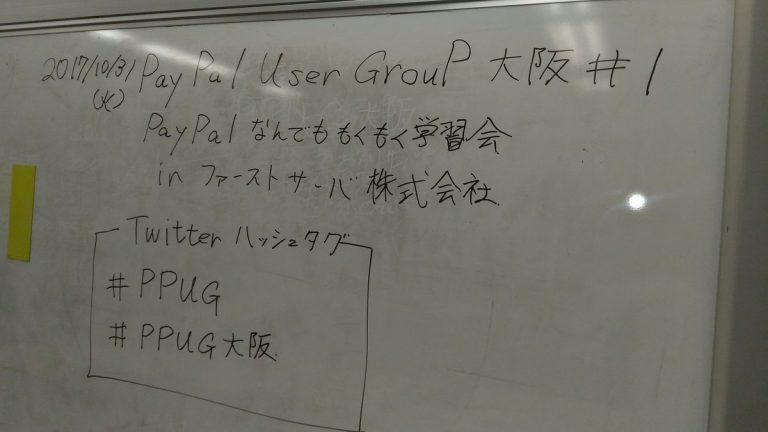 2017/10/31 PayPal User GrouP 大阪 #1
(火)
PayPal なんでももくもく学習会
in ファーストサーバ株式会社
Twitter ハッシュタグ
#PPUG
#PPUG大阪